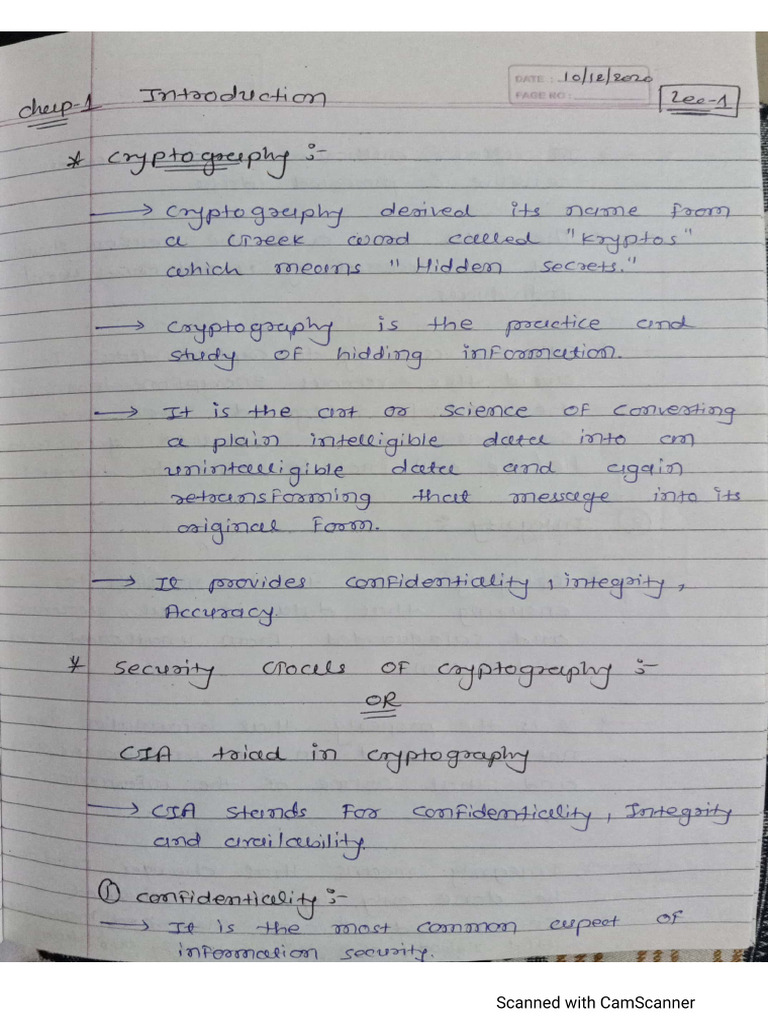 DATE: 10/12/2020
PAGE NO:
chap-1 Introduction
Lec-1
* Cryptography :-
→ Cryptography derived its name from
a Greek word called "Kryptos"
which means "Hidden secrets."
→ Cryptography is the practice and
study of hidding information.
→ It is the art or science of converting
a plain intelligible data into an
unintalligible data and again
retransforming that message into its
original form.
→ It provides confidentiality, integrity,
Accuracy.
* Security Goals of Cryptography :-
OR
CIA triad in cryptography
→ CIA stands for confidentiality, Integrity
and availability.
① Confidenticality :-
→ It is the most common aspect of
information security.
Scanned with CamScanner